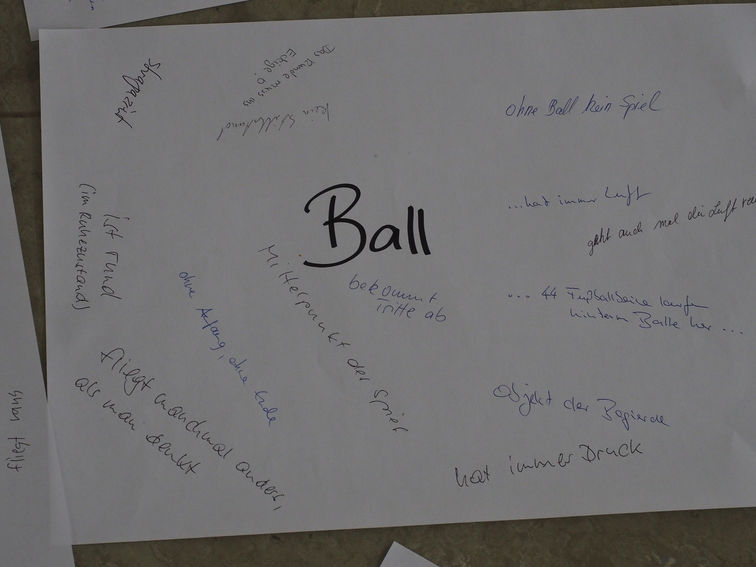 strapazist
Das Runde muss ins
Eckige!
kein Stillstand
ohne Ball kein Spiel
Ball
...hat immer Luft
geht auch mal die Luft raus
ist rund
(im Ruhezustand)
ohne Anfang, ohne Ende
Mittelpunkt der Spiel
bekommt
Tritte ab
... 44 Fußballbeine laufen
hinterm Balle her ...
fliegt manchmal anders,
als man denkt
Objekt der Begierde
hat immer Druck